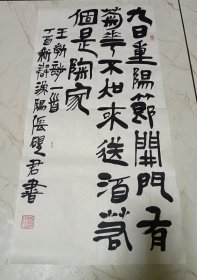 九日重陽節開門有
菊華不知來送酒若
個是陶家
王勃詩一首
丁酉新
君書